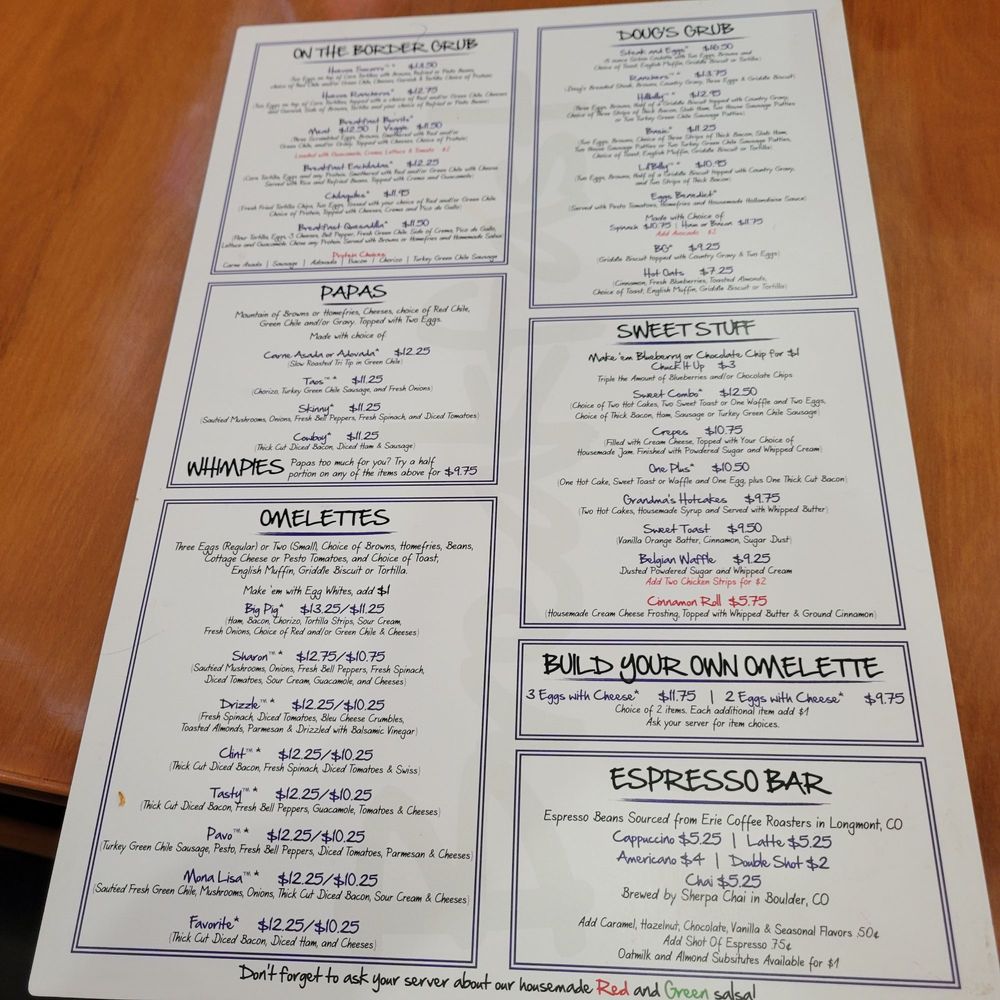 ON THE BORDER GRUB
Huevos $13.50
(Two Eggs on top of Corn Tortillas with Browns, Refried or Pinto Beans,
choice of Red Chile and/or Green Chile, Cheeses, Garnish & Tortilla. Choice of Protein)
Huevos Rancheros* $12.75
(Two Eggs on top of Corn Tortillas, topped with a choice of Red and/or Green Chile, Cheeses
and Garnish, Side of Browns, Tortilla and your choice of Refried or Pinto Beans)
Breakfast Burrito*
Meat $12.50 | Veggie $11.50
(Three Scrambled Eggs, Browns, Smothered with Red and/or
Green Chile, and/or Gravy. Topped with Cheeses, Choice of Protein)
Loaded with Guacamole, Crema, Lettuce & Tomato $2
Breakfast Enchiladas* $12.25
(Corn Tortilla, Eggs and any Protein, Smothered with Red and/or Green Chile with Cheese
Served with Rice and Refried Beans, Topped with Crema and Guacamole)
Chilaquiles* $11.95
(Fresh Fried Tortilla Chips, Two Eggs, Tossed with your choice of Red and/or Green Chile
Choice of Protein, Topped with Cheeses, Crema and Pico de Gallo)
Breakfast Quesadilla* $11.50
(Flour Tortilla, Eggs, 3 Cheeses, Bell Pepper, Fresh Green Chile. Side of Crema, Pico de Gallo,
Lettuce and Guacamole. Chose any Protein. Served with Browns or Homefries and Homemade Salsa)
Protein Choices
Carne Asada | Sausage | Adovada | Bacon | Chorizo | Turkey Green Chile Sausage
PAPAS
Mountain of Browns or Homefries, Cheeses, choice of Red Chile,
Green Chile and/or Gravy. Topped with Two Eggs.
Made with choice of:
Carne Asada or Adovada* $12.25
(Slow Roasted Tri Tip in Green Chile)
Taos™* $11.25
(Chorizo, Turkey Green Chile Sausage, and Fresh Onions)
Skinny* $11.25
(Sautéed Mushrooms, Onions, Fresh Bell Peppers, Fresh Spinach, and Diced Tomatoes)
Cowboy* $11.25
(Thick Cut Diced Bacon, Diced Ham & Sausage)
WHIMPIES Papas too much for you? Try a half
portion on any of the items above for $9.75
OMELETTES
Three Eggs (Regular) or Two (Small), Choice of Browns, Homefries, Beans,
Cottage Cheese or Pesto Tomatoes, and Choice of Toast,
English Muffin, Griddle Biscuit or Tortilla.
Make 'em with Egg Whites, add $1
Big Pig* $13.25/$11.25
(Ham, Bacon, Chorizo, Tortilla Strips, Sour Cream,
Fresh Onions, Choice of Red and/or Green Chile & Cheeses)
Sharon™* $12.75/$10.75
(Sautéed Mushrooms, Onions, Fresh Bell Peppers, Fresh Spinach,
Diced Tomatoes, Sour Cream, Guacamole, and Cheeses)
Drizzle™* $12.25/$10.25
(Fresh Spinach, Diced Tomatoes, Bleu Cheese Crumbles,
Toasted Almonds, Parmesan & Drizzled with Balsamic Vinegar)
Clint™* $12.25/$10.25
(Thick Cut Diced Bacon, Fresh Spinach, Diced Tomatoes & Swiss)
Tasty™* $12.25/$10.25
(Thick Cut Diced Bacon, Fresh Bell Peppers, Guacamole, Tomatoes & Cheeses)
Pavo™* $12.25/$10.25
(Turkey Green Chile Sausage, Pesto, Fresh Bell Peppers, Diced Tomatoes, Parmesan & Cheeses)
Mona Lisa™* $12.25/$10.25
(Sautéed Fresh Green Chile, Mushrooms, Onions, Thick Cut Diced Bacon, Sour Cream & Cheeses)
Favorite* $12.25/$10.25
(Thick Cut Diced Bacon, Diced Ham, and Cheeses)
DOUG'S GRUB
Steak and Eggs* $16.50
(8 ounce Sirloin Coulotte with Two Eggs, Browns and
Choice of Toast, English Muffin, Griddle Biscuit or Tortilla)
Ranchers™* $13.75
(Doug's Breaded Steak, Browns, Country Gravy, Three Eggs & Griddle Biscuit)
Hillbilly™* $12.95
(Three Eggs, Browns, Half of a Griddle Biscuit topped with Country Gravy,
Choice of Three Strips of Thick Bacon, Slab Ham, Two House Sausage Patties
or Two Turkey Green Chile Sausage Patties)
Basic* $11.25
(Two Eggs, Browns, Choice of Three Strips of Thick Bacon, Slab Ham,
Two House Sausage Patties or Two Turkey Green Chile Sausage Patties,
Choice of Toast, English Muffin, Griddle Biscuit or Tortilla)
Lil'Billy™* $10.95
(Two Eggs, Browns, Half of a Griddle Biscuit topped with Country Gravy,
and Two Strips of Thick Bacon)
Eggs Benedict*
(Served with Pesto Tomatoes, Homefries and Housemade Hollandaise Sauce)
Made with Choice of:
Spinach $10.75 | Ham or Bacon $11.75
Add Avocado $2
BG* $9.25
(Griddle Biscuit topped with Country Gravy & Two Eggs)
Hot Oats $7.25
(Cinnamon, Fresh Blueberries, Toasted Almonds,
Choice of Toast, English Muffin, Griddle Biscuit or Tortilla)
SWEET STUFF
Make 'em Blueberry or Chocolate Chip for $1
Chuck It Up $3
Triple the Amount of Blueberries and/or Chocolate Chips
Sweet Combo* $12.50
(Choice of Two Hot Cakes, Two Sweet Toast or One Waffle and Two Eggs,
Choice of Thick Bacon, Ham, Sausage or Turkey Green Chile Sausage)
Crepes $10.75
(Filled with Cream Cheese, Topped with Your Choice of
Housemade Jam. Finished with Powdered Sugar and Whipped Cream)
One Plus* $10.50
(One Hot Cake, Sweet Toast or Waffle and One Egg, plus One Thick Cut Bacon)
Grandma's Hotcakes $9.75
(Two Hot Cakes, Housemade Syrup and Served with Whipped Butter)
Sweet Toast $9.50
(Vanilla Orange Batter, Cinnamon, Sugar Dust)
Belgian Waffle $9.25
Dusted Powdered Sugar and Whipped Cream
Add Two Chicken Strips for $2
Cinnamon Roll $5.75
(Housemade Cream Cheese Frosting, Topped with Whipped Butter & Ground Cinnamon)
BUILD YOUR OWN OMELETTE
3 Eggs with Cheese* $11.75 | 2 Eggs with Cheese* $9.75
Choice of 2 items. Each additional item add $1
Ask your server for item choices.
ESPRESSO BAR
Espresso Beans Sourced from Erie Coffee Roasters in Longmont, CO
Cappuccino $5.25 | Latte $5.25
Americano $4 | Double Shot $2
Chai $5.25
Brewed by Sherpa Chai in Boulder, CO
Add Caramel, Hazelnut, Chocolate, Vanilla & Seasonal Flavors .50¢
Add Shot Of Espresso 75¢
Oatmilk and Almond Subsitutes Available for $1
Don't forget to ask your server about our housemade Red and Green salsa!